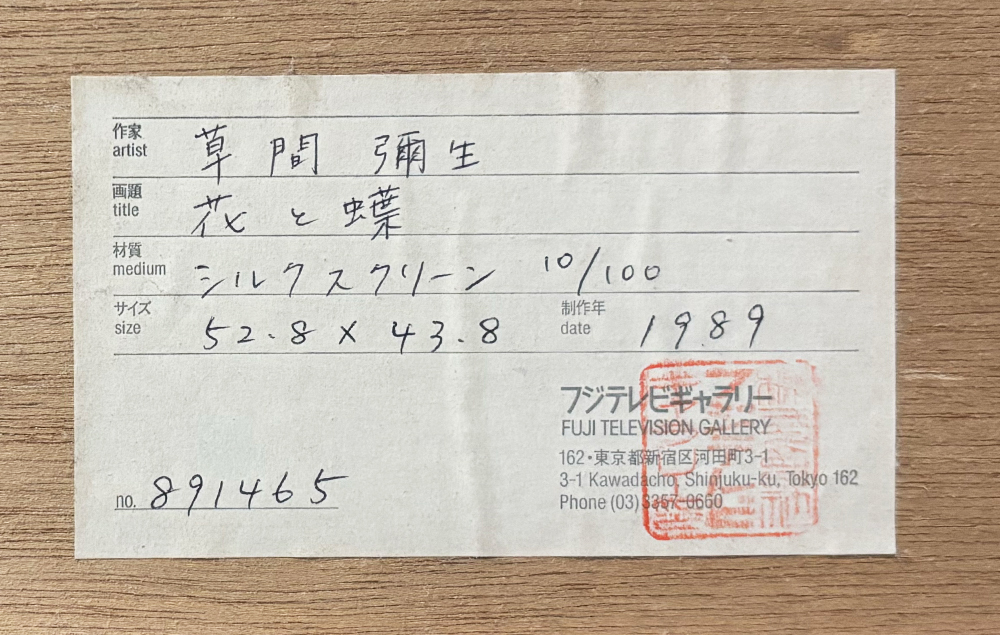 作家
artist 草間 彌生
画題
title 花と蝶
材質
medium シルクスクリーン 10/100
サイズ
size 52.8 × 43.8
制作年
date 1989
フジテレビギャラリー
FUJI TELEVISION GALLERY
162・東京都新宿区河田町3-1
3-1 Kawadacho, Shinjuku-ku, Tokyo 162
Phone (03) 3357-0660
no. 891465